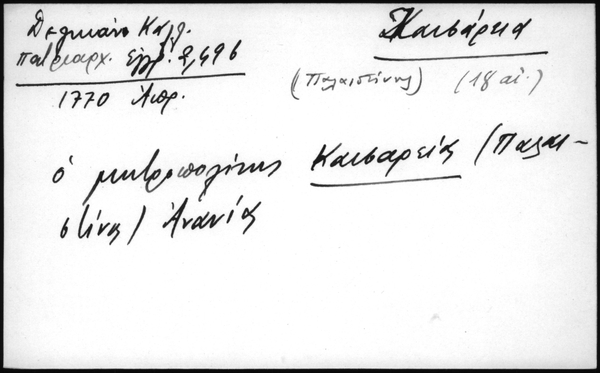 Δελικάνη Καλλ.
Πατριαρχ. Εγγρ. 2,496
1770 Απρ.
Καισάρεια
(Παλαιστίνης) (18 αἰ.)
ὁ μητροπολίτης Καισαρείας (Παλαι-
στίνης) Ἀνανίας